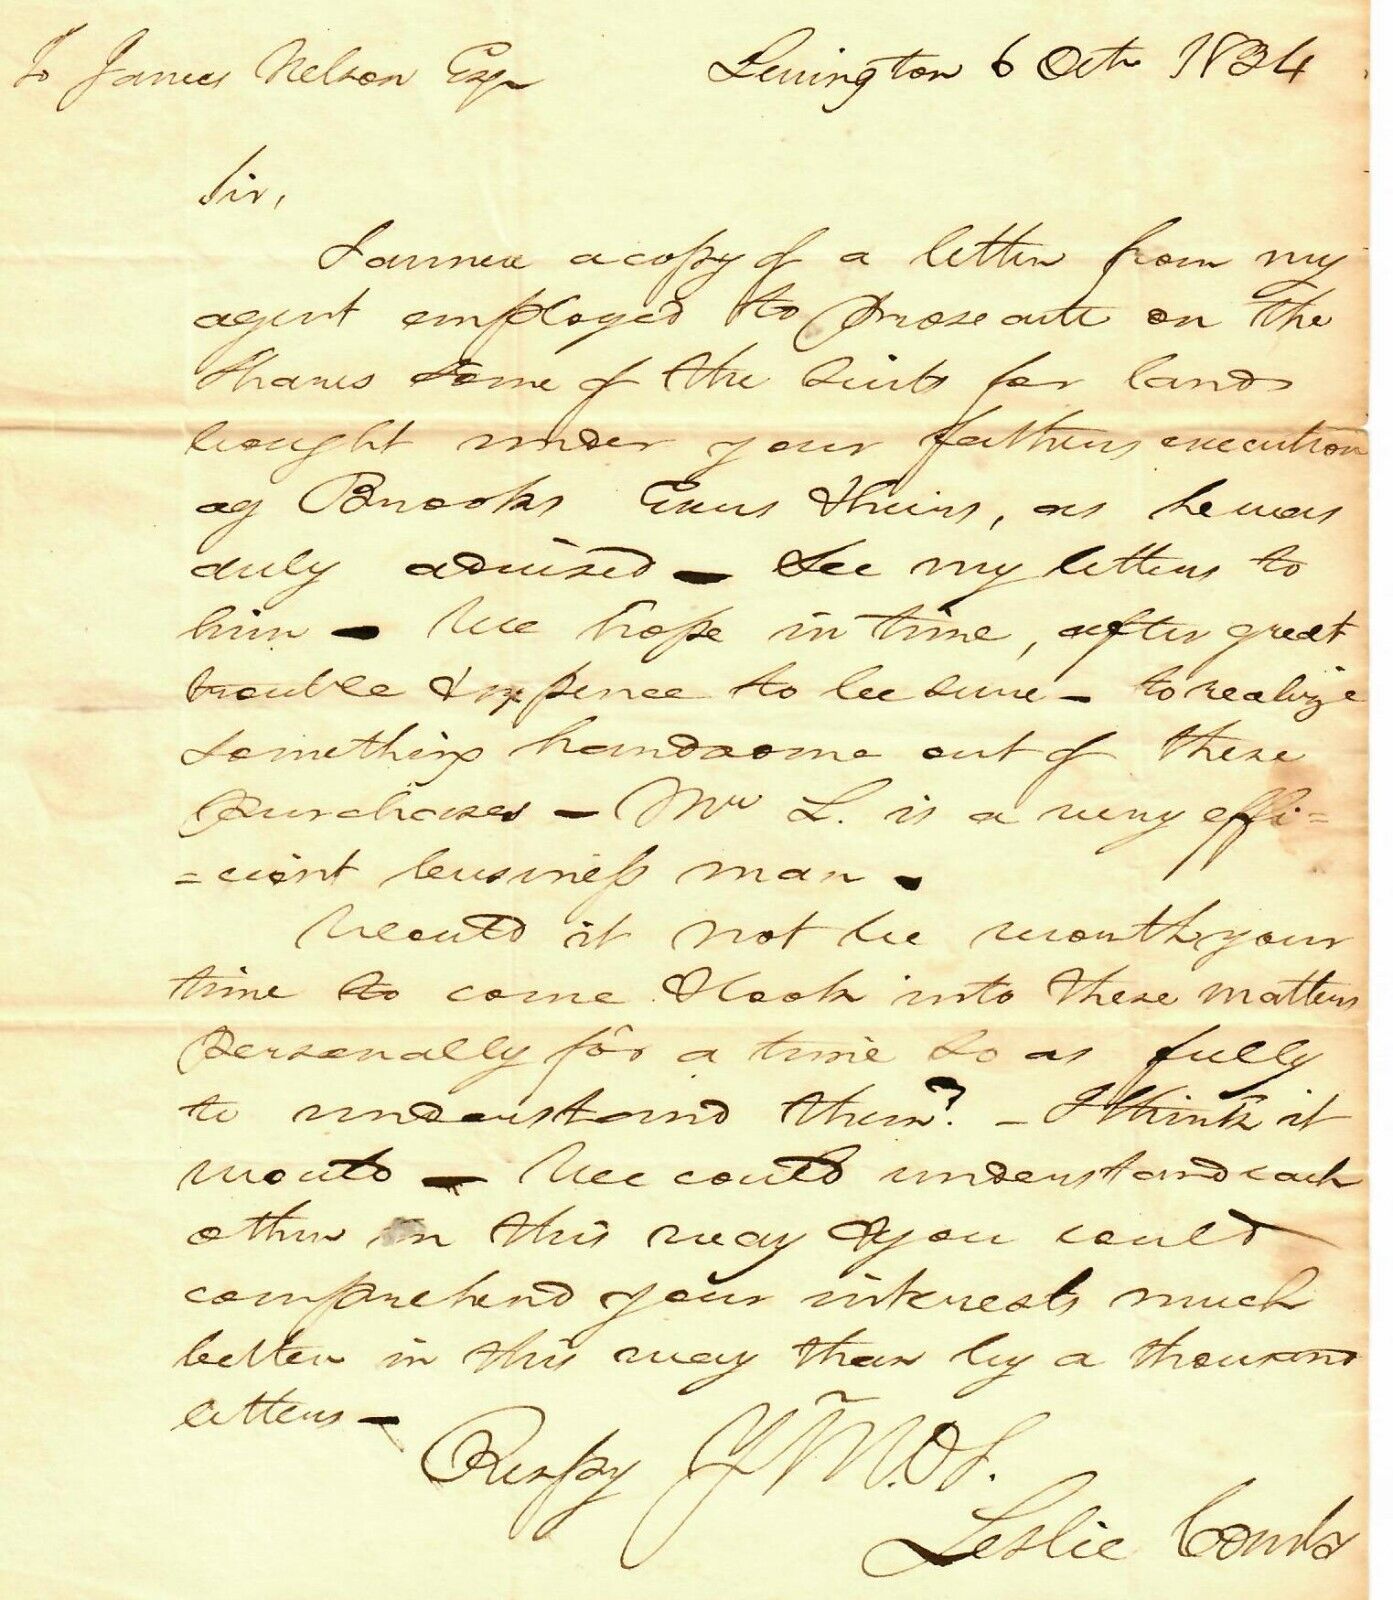 To James Nelson Esqr
Lexington 6 Octr 1834
Sir,
I annex a copy of a letter from my
agent employed to prosecute on the
shares some of the suits for lands
bought under your fathers execution
ag Brooks Exrs & heirs, as he was
duly advised - See my letters to
him - We hope in time, after great
trouble & expence to be sure - to realize
something handsome out of these
purchases - Mr L. is a very effi=
=cient business man -
Would it not be worth your
time to come & look into these matters
personally for a time so as fully
to understand them? - I think it
would - We could understand each
other in this way & you could
comprehend your interests much
better in this way than by a thousand
letters -
Respy Yr M. O S.
Leslie Combs